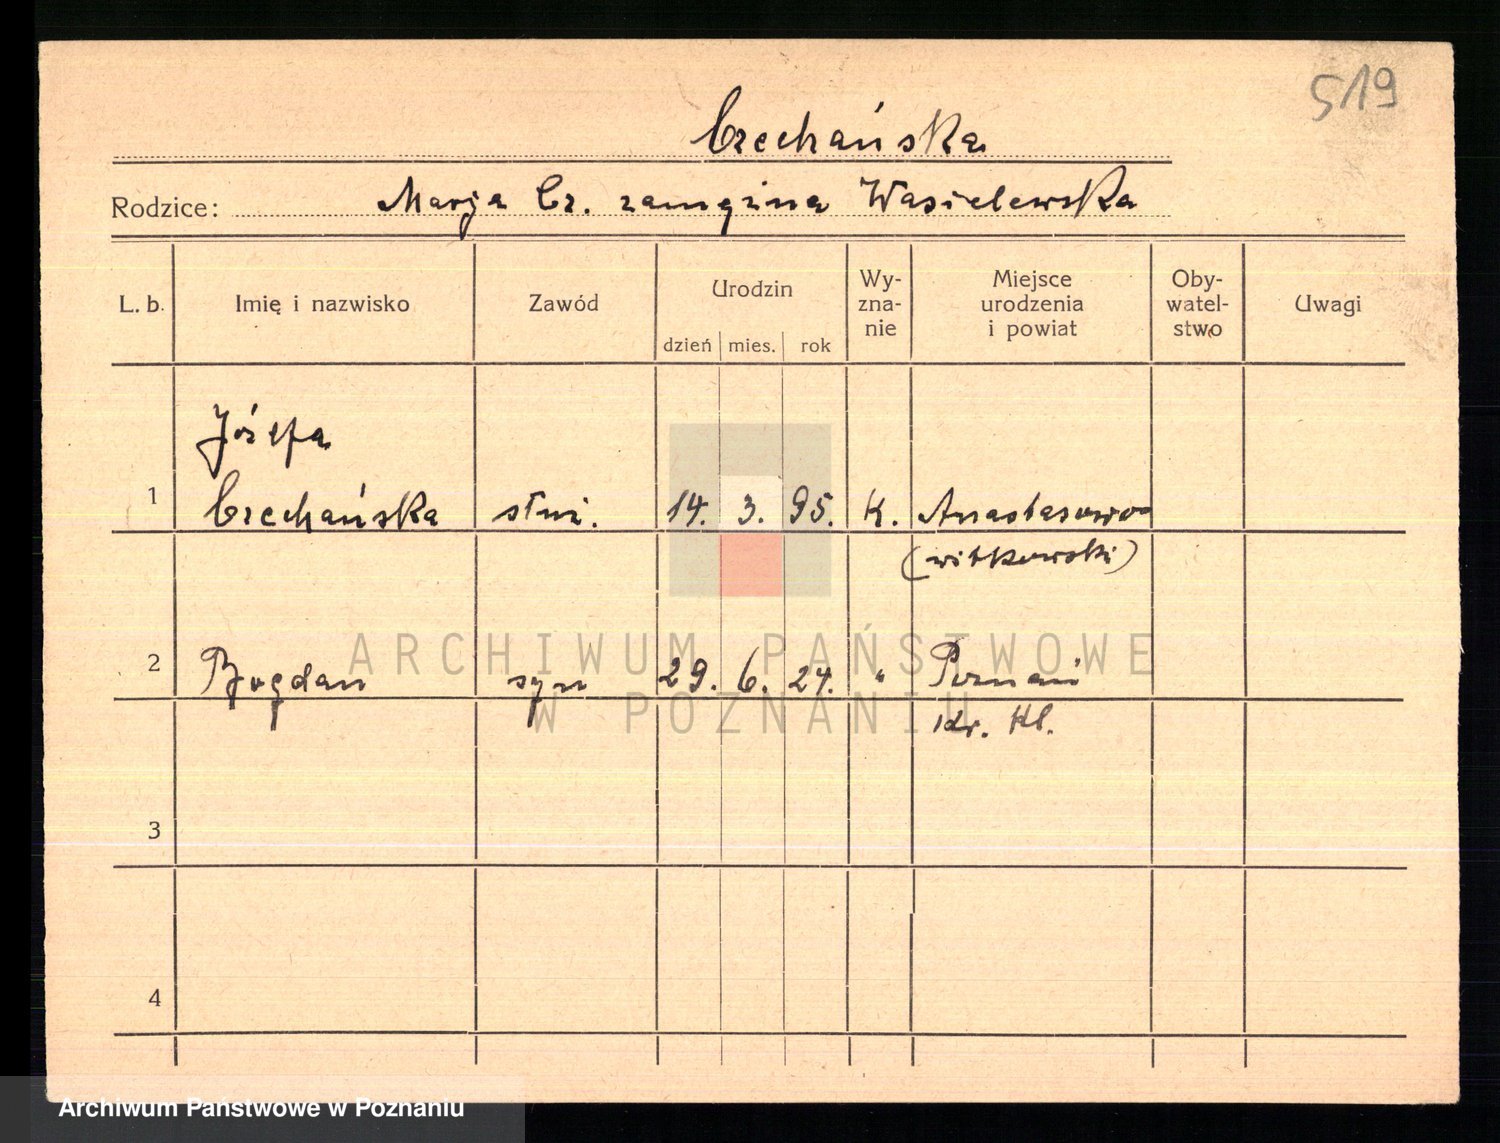 519
Czechańska
Rodzice: Marja Cz. zamężna Wasielewska
L. b. Imię i nazwisko Zawód Urodzin dzień mies. rok Wy-zna-nie Miejsce urodzenia i powiat Oby-watel-stwo Uwagi
Józefa
1 Czechańska służ. 14. 3. 95. K. Anastazewo
(witkowski)
2 Bogdan syn 29. 6. 24. " Poznań
Kr. Hl.
3
4
ARCHIWUM PAŃSTWOWE
W POZNANIU
Archiwum Państwowe w Poznaniu